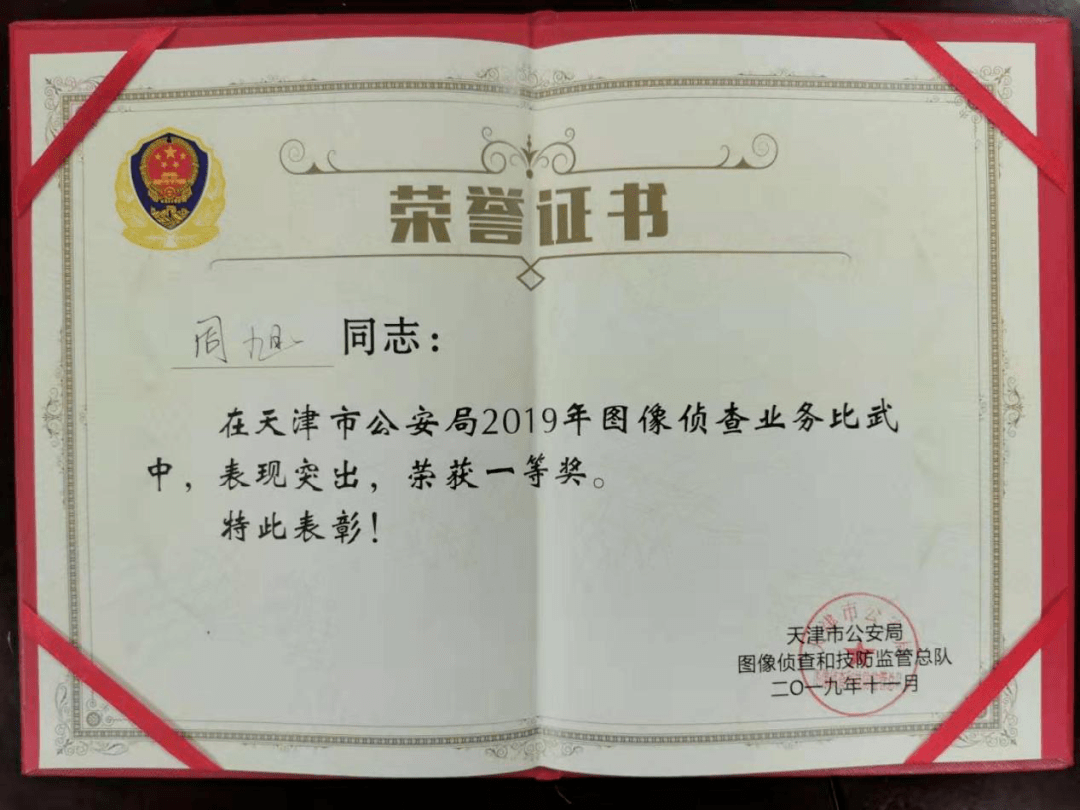 荣誉证书
周旭 同志：
在天津市公安局2019年图像侦查业务比武
中，表现突出，荣获一等奖。
特此表彰！
天津市公安局
图像侦查和技防监管总队
二〇一九年十一月